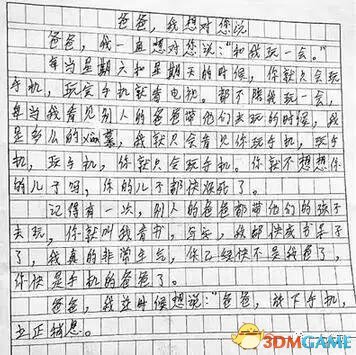 爸爸,我想对您说
爸爸,我一直想对您说:“和我玩一会。”
每当星期六和星期天的时候,你就只会玩
手机,玩完手机就看电视。都不陪我玩一会,
每当我看见别人的爸爸带他们去玩的时候,我
是多么的xiàn慕,我就只会看见你玩手机,玩手
机,玩手机,你就只会玩手机。你就不想想你
的儿子吗,你的儿子都快疯死了。
记得有一次,别人的爸爸都带他们的孩子
去玩,你就叫我看书,写字,我都快成书呆子
了,我真的非常生气,你已经快不是我爸了,
你快是手机的爸爸了。
爸爸,我这时候想说:“爸爸,放下手机,
去正视息。
3DMGAME